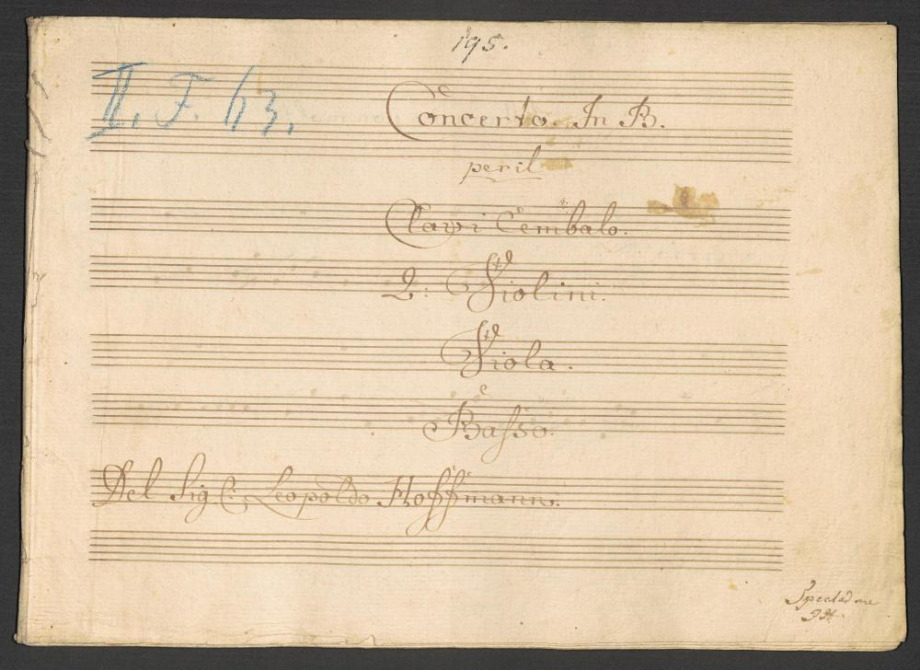 195.
II. F. 63.
Concerto. In B.
per il
Clavi Cembalo.
2: Violini.
Viola.
e
Basso.
Del Sig: Leopoldo Hoffmann.